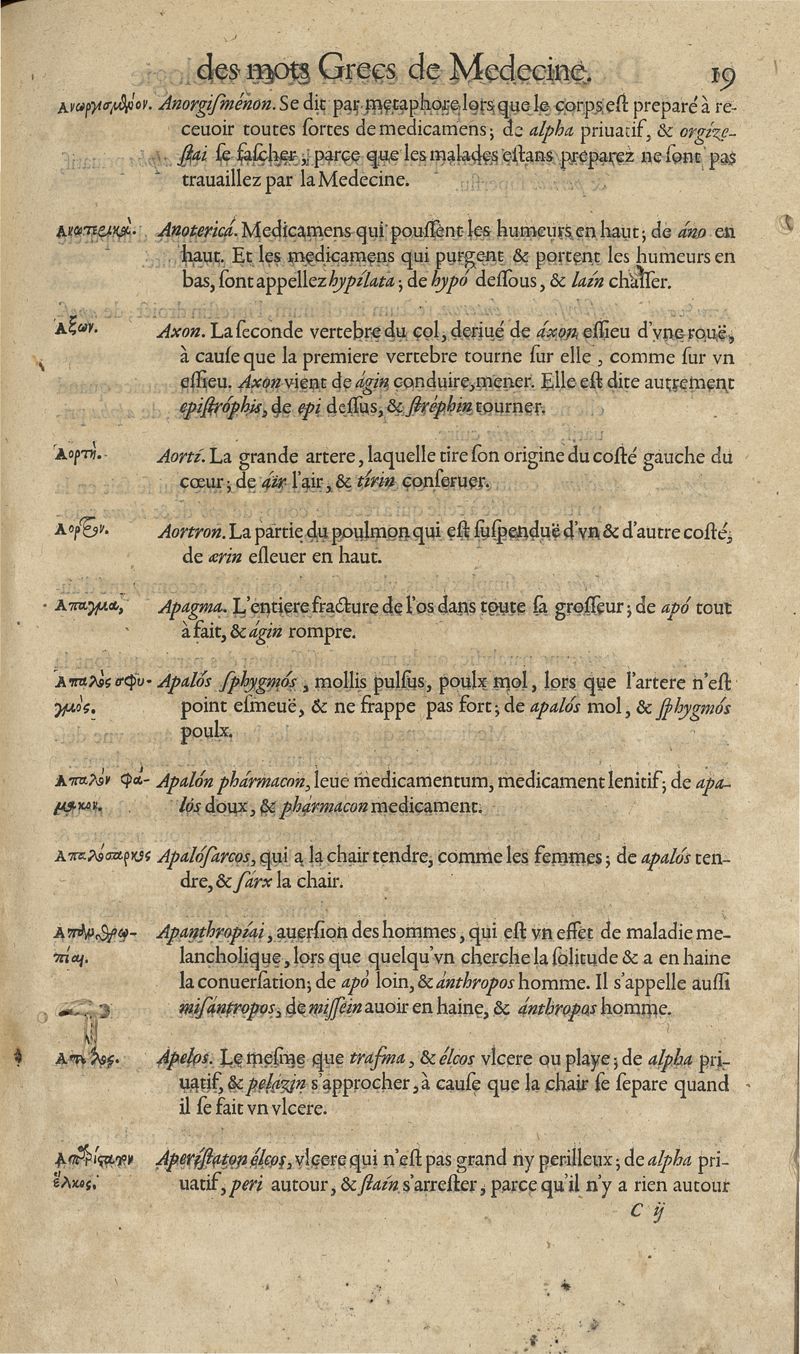 des mots Grecs de Medecine. 19
Ανωργισμένον. Anorgiſménon. Se dit par metaphore lors que le corps eſt preparé à re-
ceuoir toutes ſortes de medicamens; de alpha priuatif, & orgíze-
ſtai ſe faſcher, parce que les malades eſtans preparez ne ſont pas
trauaillez par la Medecine.
Ανωτερικά. Anotericá. Medicamens qui pouſſent les humeurs en haut; de áno en
haut. Et les medicamens qui purgent & portent les humeurs en
bas, ſont appellez hypílata; de hypó deſſous, & laín chaſſer.
Αξων. Axon. La ſeconde vertebre du col, deriué de áxon eſſieu d'vne rouë,
à cauſe que la premiere vertebre tourne ſur elle, comme ſur vn
eſſieu. Axon vient de ágin conduire, mener. Elle eſt dite autrement
epiſtróphis, de epi deſſus, & ſtréphin tourner.
Αορτὴ. Aortí. La grande artere, laquelle tire ſon origine du coſté gauche du
cœur; de áir l'air, & tírin conſeruer.
Αορτρον. Aortron. La partie du poulmon qui eſt ſuſpenduë d'vn & d'autre coſté;
de ærin eſleuer en haut.
Απαγμα, Apagma. L'entiere fracture de l'os dans toute ſa groſſeur; de apó tout
à fait, & ágin rompre.
Απαλὸς σφυ- Apalós ſphygmós, mollis pulſus, poulx mol, lors que l'artere n'eſt
γμὸς. point eſmeuë, & ne frappe pas fort; de apalós mol, & ſphygmós
poulx.
Απαλὸν φά- Apalón phármacon, leue medicamentum, medicament lenitif; de apa-
μακον. lós doux, & phármacon medicament.
Απαλόσαρκος Apalóſarcos, qui a la chair tendre, comme les femmes; de apalós ten-
dre, & ſárx la chair.
Απανθρω- Apanthropíai, auerſion des hommes, qui eſt vn effet de maladie me-
πίαι. lancholique, lors que quelqu'vn cherche la ſolitude & a en haine
la conuerſation; de apó loin, & ánthropos homme. Il s'appelle auſſi
miſántropos, de miſſéin auoir en haine, & ánthropos homme.
Απελος. Apelos. Le meſme que trafma, & élcos vlcere ou playe; de alpha pri-
uatif, & pelázin s'approcher, à cauſe que la chair ſe ſepare quand
il ſe fait vn vlcere.
Απερίστατον Aperíſtaton élcos, vlcere qui n'eſt pas grand ny perilleux; de alpha pri-
ἕλκος. uatif, peri autour, & ſtaín s'arreſter, parce qu'il n'y a rien autour
C ij